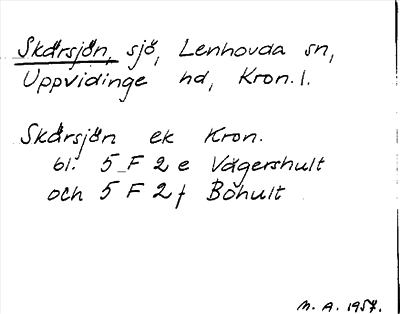 Skärsjön, sjö, Lenhovda sn,
Uppvidinge hd, Kron. l.
Skärsjön ek Kron.
bl. 5 F 2 e Vägershult
och 5 F 2 f Bohult
M. A. 1957.